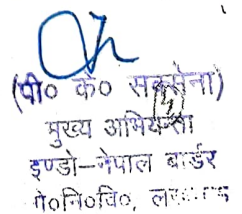 (पी० के० सक्सेना)
मुख्य अभियन्ता
इण्डो-नेपाल बार्डर
लो०नि०वि०,